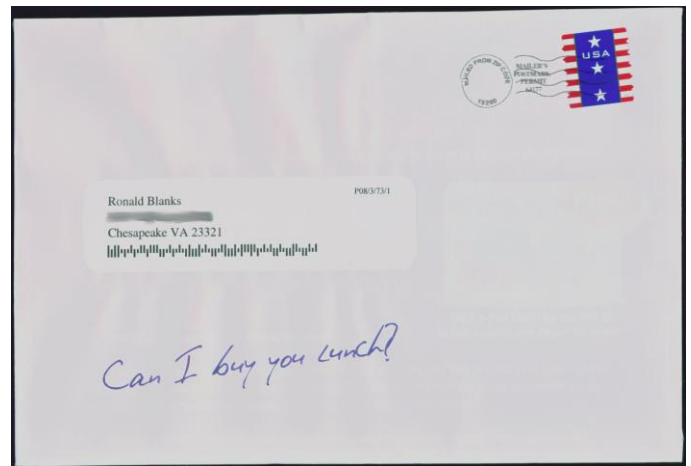 USA
MAILED FROM ZIP CODE
MAILER'S
POSTMARK
PERMIT
P08/3/73/1
Ronald Blanks
Chesapeake VA 23321
Can I buy you Lunch?